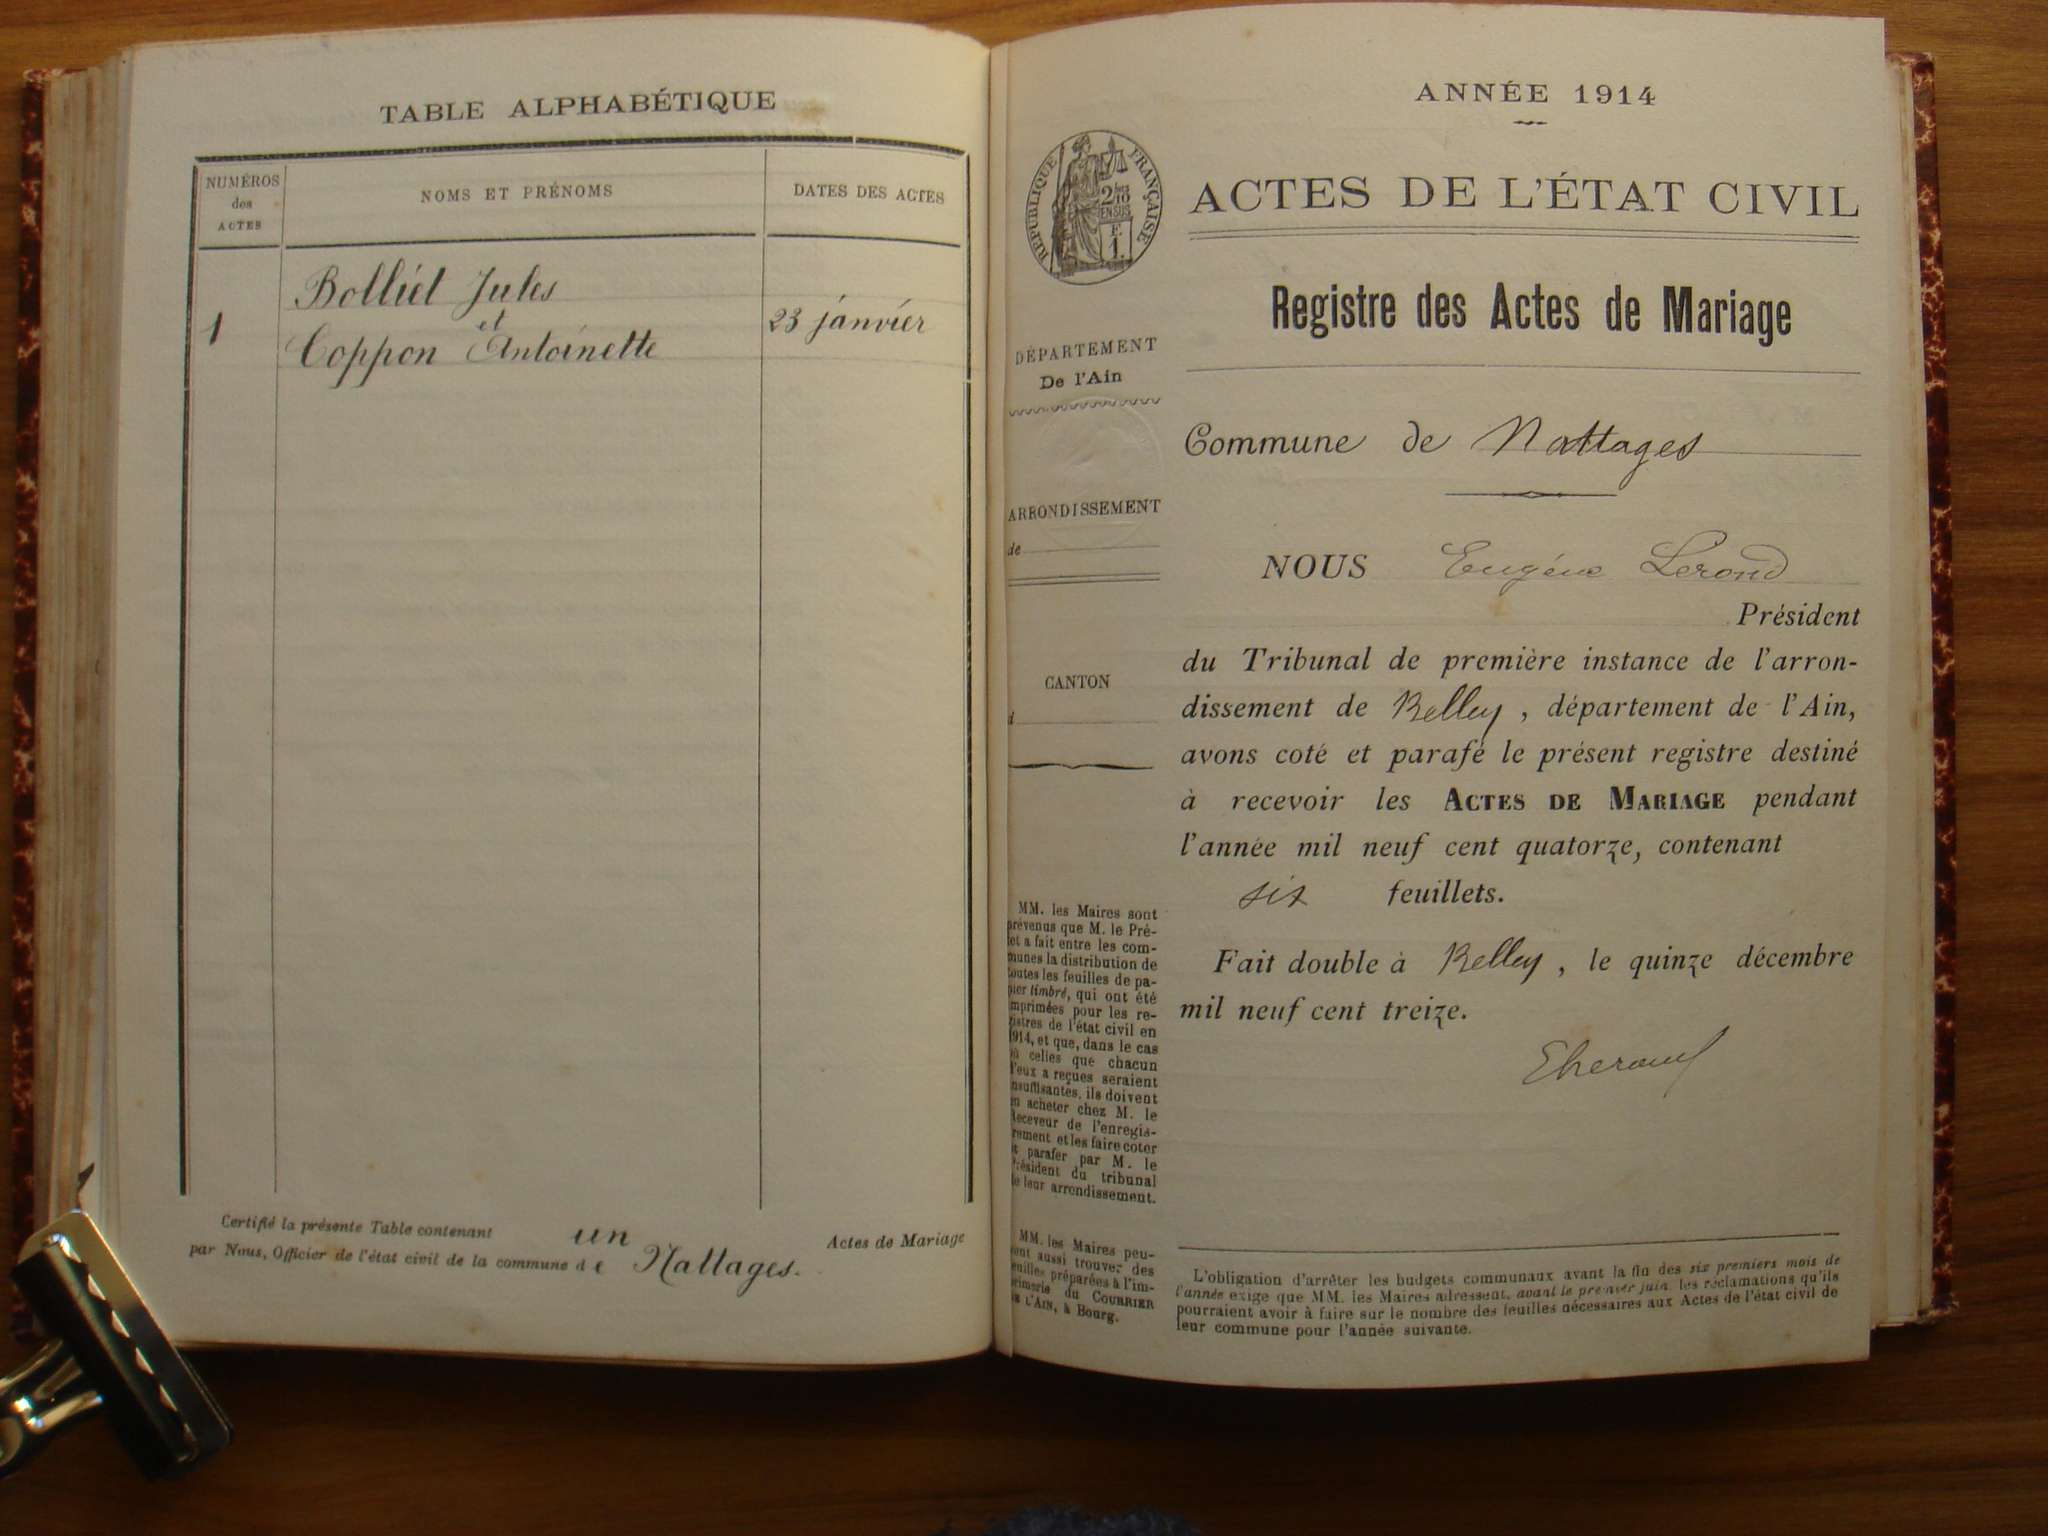 TABLE ALPHABÉTIQUE
NUMÉROS
des
ACTES
NOMS ET PRÉNOMS
DATES DES ACTES
1
Bolliet Jules
et
Coppon Antoinette
23 janvier
Certifié la présente Table contenant un Actes de Mariage
par Nous, Officier de l'état civil de la commune de Nattages.
ANNÉE 1914
RÉPUBLIQUE FRANÇAISE
2
EN SUS
F.
1.
ACTES DE L'ÉTAT CIVIL
Registre des Actes de Mariage
DÉPARTEMENT
De l'Ain
ARRONDISSEMENT
de
CANTON
d
MM. les Maires sont
prévenus que M. le Pré-
fet a fait entre les com-
munes la distribution de
toutes les feuilles de pa-
pier timbré, qui ont été
imprimées pour les re-
gistres de l'état civil en
1914, et que, dans le cas
où celles que chacun
d'eux a reçues seraient
insuffisantes, ils doivent
en acheter chez M. le
Receveur de l'enregis-
trement et les faire coter
et parafer par M. le
Président du tribunal
de leur arrondissement.
MM. les Maires peu-
vent aussi trouver des
feuilles préparées à l'im-
primerie du COURRIER
DE L'AIN, à Bourg.
Commune de Nattages
NOUS Eugène Lerond
Président
du Tribunal de première instance de l'arron-
dissement de Belley, département de l'Ain,
avons coté et parafé le présent registre destiné
à recevoir les ACTES DE MARIAGE pendant
l'année mil neuf cent quatorze, contenant
six feuillets.
Fait double à Belley, le quinze décembre
mil neuf cent treize.
L'obligation d'arrêter les budgets communaux avant la fin des six premiers mois de
l'année exige que MM. les Maires adressent, avant le premier juin, les réclamations qu'ils
pourraient avoir à faire sur le nombre des feuilles nécessaires aux Actes de l'état civil de
leur commune pour l'année suivante.